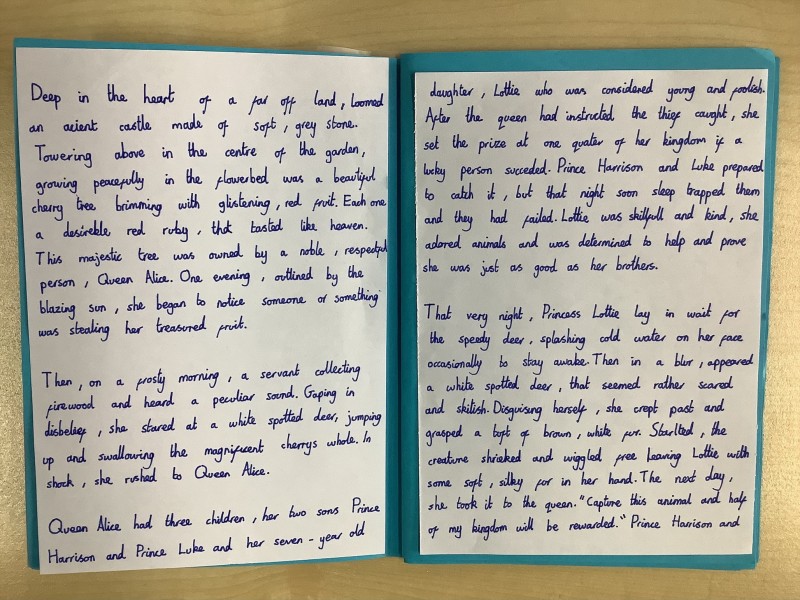 Deep in the heart of a far off land, loomed
an acient castle made of soft, grey stone.
Towering above in the centre of the garden,
growing peacefully in the flowerbed was a beautiful
cherry tree brimming with glistening, red fruit. Each one
a desireble red ruby, that tasted like heaven.
This majestic tree was owned by a noble, respectful
person, Queen Alice. One evening, outlined by the
blazing sun, she began to notice someone or something
was stealing her treasured fruit.
Then, on a frosty morning, a servant collecting
firewood and heard a peculiar sound. Gaping in
disbelief, she stared at a white spotted deer, jumping
up and swallowing the magnificent cherrys whole. In
shock, she rushed to Queen Alice.
Queen Alice had three children, her two sons Prince
Harrison and Prince Luke and her seven-year old
daughter, Lottie who was considered young and foolish.
After the queen had instructed the thief caught, she
set the prize at one quater of her kingdom if a
lucky person succeded. Prince Harrison and Luke prepared
to catch it, but that night soon sleep trapped them
and they had failed. Lottie was skillfull and kind, she
adored animals and was determined to help and prove
she was just as good as her brothers.
That very night, Princess Lottie lay in wait for
the speedy deer, splashing cold water on her face
occasionally to stay awake. Then in a blur, appeared
a white spotted deer, that seemed rather scared
and skitish. Disguising herself, she crept past and
grasped a tuft of brown, white fur. Starlted, the
creature shrieked and wiggled free leaving Lottie with
some soft, silky for in her hand. The next day,
she took it to the queen. "Capture this animal and half
of my kingdom will be rewarded." Prince Harrison and